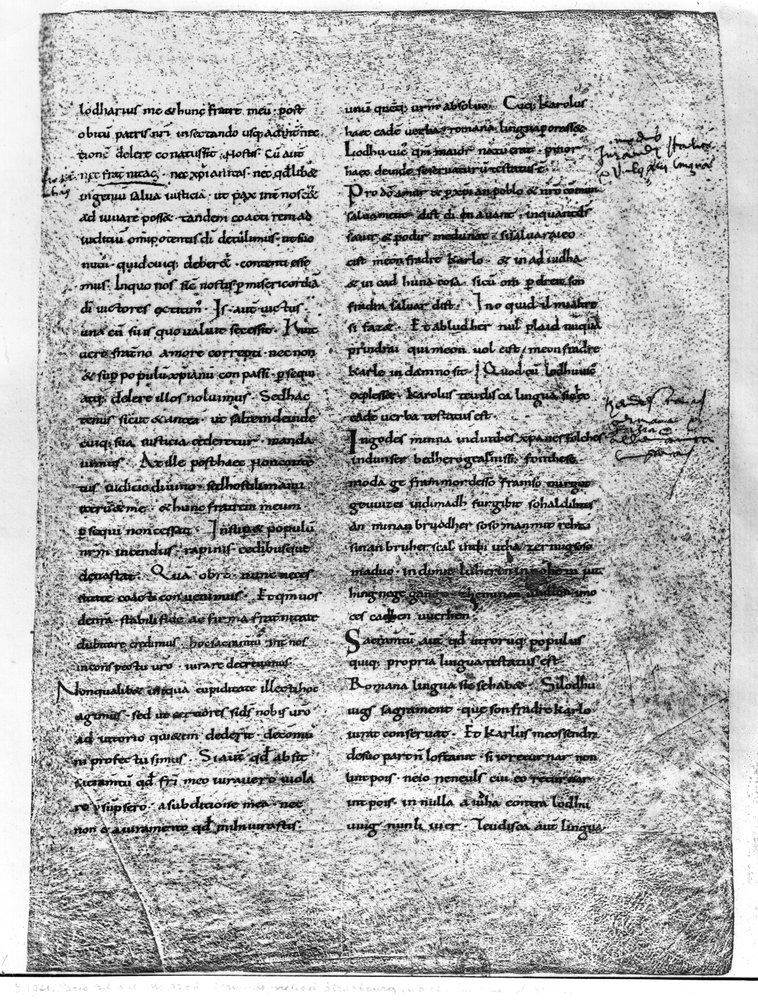 lodharius me & hunc fratrē meū · post
obitū patris nr̄i insectando usq; ad inter nec
tionē delere conatus sit · Nostis · Cū aut̄
nec frat nitas · nec xp̄ianitas · nec qd̄ lib&
ingeniū salva iusticia · ut pax int̄ nos ess&
ad iuuare poss& · tandem coacti rem ad
iuditiū omīpotentis dī detulimus · ut suo
nutu · quid cuiq; deber& · contenti esse
mus · In quo nos sic̄ nostis p̄ misericordiā
dī uictores extitim̄ · Is aut̄ uictus ·
una cū suis quo ualuit secessit · Hinc
uero fraterno amore correpti · nec non
& sup̄ populū xp̄ianū con passi · p̄sequi
atq; delere illos noluimus · Sed hac
tenus sicut & antea · ut saltem deinde
cuiq; sua iusticia cederetur · manda
uimus · At ille post haec Non conten
tus iudicio diuino · sed hostili manu
iterū & me · & hunc fratrem meum ·
p̄sequi non cessat · Insup̄ & populū
nr̄m incendiis · rapinis · cedibusq;
deuastat · Qua obrē · nunc neces
sitate coacti conuenimus · Et qm̄ uos
de nr̄a stabili fide ac firma frat̄nitate
dubitare credimus · hoc sacramtū int̄ nos
in conspectu uro · iurare decreuimus ·
Non qualib& iniqua cupiditate illecti hoc
agimus · sed ut certiores si dō nobis uro
ad iutorio quietem dederit · de comū
ni profectu simus · Si aut̄ qd̄ absit
sacramtū qd̄ frī meo iurauero uiola
re p̄supsero · a subditione mea · nec
non & a iuramento qd̄ mihi iurastis ·
unū quēq; urm̄ absoluo · Cūq; karolus
haec eadē uerba romana lingua perorass&
Lodhuuic̄ qm̄ maior natu erat · prior
haec deinde se seruaturū testatus ē ·
Pro dō amur & p̄ xp̄ian poblo & nr̄o comun
saluament · dist di en auant · inquant ds̄
sauir & podir me dunat · si saluarai eo ·
cist meon fradre karlo · & in ad iudha
& in cad huna cosa · sicū om p̄ dreit son
fradra saluar dist · Ino quid il mialtre
si faz& · Et abludher nul plaid nūquā
prindrai qui meon uol cist · meon fradre
karle in damno sit · Quod cū lodhuuic̄
explesset · karolus teudisca lingua sic ec̄
eadē uerba testatus est ·
In godes minna induithes xp̄anes folches
ind unser bedhero gealtnissi · fonthese
moda ge frammordesso framso mirgot
geuuizci indi madh furgibit so haldihtes
an minan bruodher soso man mit rehtu
sinan bruher scal inthi utha zer mig so so
maduo · indi mit luheren in no hein iut
hing nege gango · zheminan uuillon imo
ces cadhen uuerhen ·
Sacramtū aut̄ qd̄ utrorūq; populus
quiq; propria lingua testatus est ·
Romana lingua sic se hab& · Si lodhu
uigs sagrament · que son fradre karlo
iurat conseruat · Et karlus meossendra
de suo part n̄ lostanit · si io returnar non
lint pois · neio neneuls cui eo returnar
int pois · in nulla a iuha contra lodhu
uuig nun li iuer · Teudisca aut̄ lingua ·